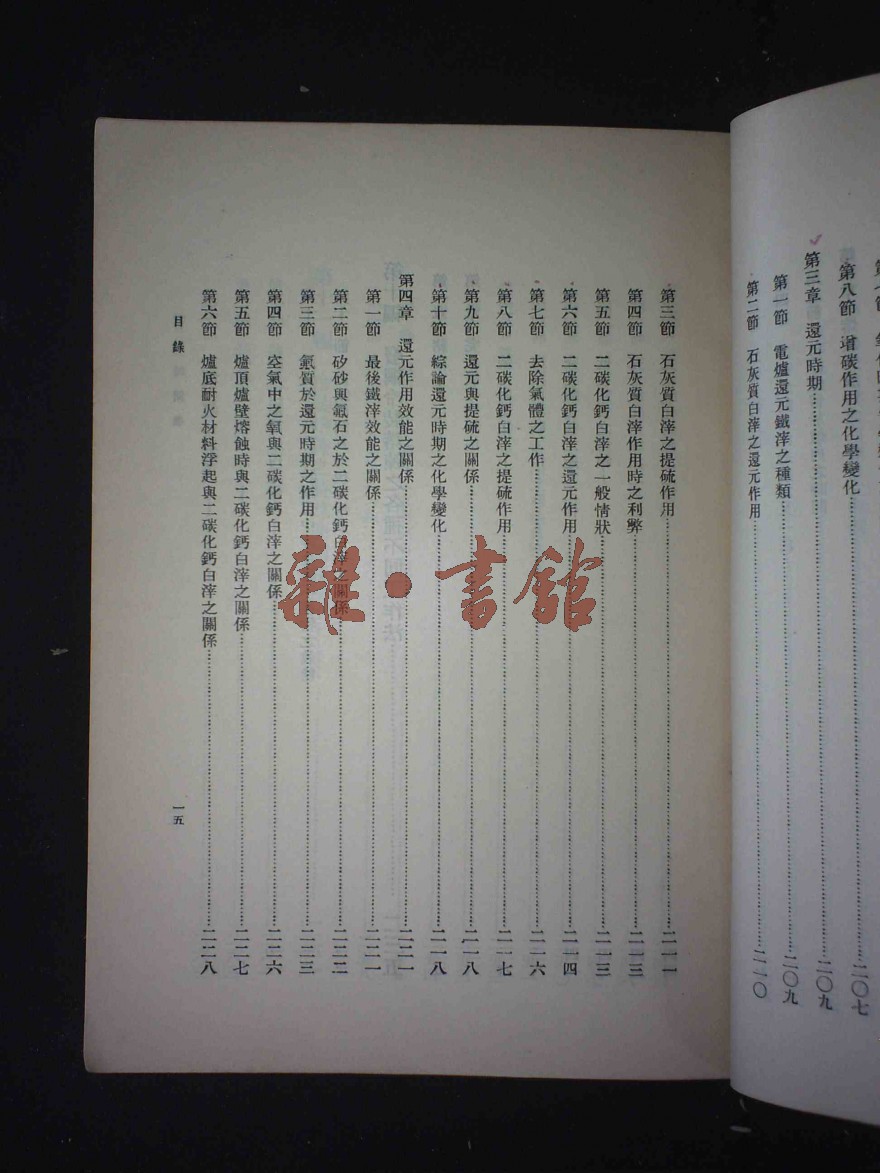 第八節 增碳作用之化學變化 二〇七
第三章 還元時期 二〇九
第一節 電爐還元鐵滓之種類 二〇九
第二節 石灰質白滓之還元作用 二一〇
第三節 石灰質白滓之提硫作用 二一一
第四節 石灰質白滓作用時之利弊 二一三
第五節 二碳化鈣白滓之一般情狀 二一三
第六節 二碳化鈣白滓之還元作用 二一四
第七節 去除氣體之工作 二一六
第八節 二碳化鈣白滓之提硫作用 二一七
第九節 還元與提硫之關係 二一八
第十節 綜論還元時期之化學變化 二一八
第四章 還元作用效能之關係 二二一
第一節 最後鐵滓效能之關係 二二一
第二節 矽砂與氟石之於二碳化鈣白滓之關係 二二二
第三節 氫質於還元時期之作用 二二三
第四節 空氣中之氧與二碳化鈣白滓之關係 二二六
第五節 爐頂爐壁熔蝕時與二碳化鈣白滓之關係 二二七
第六節 爐底耐火材料浮起與二碳化鈣白滓之關係 二二八
目錄
一五
雜·書館